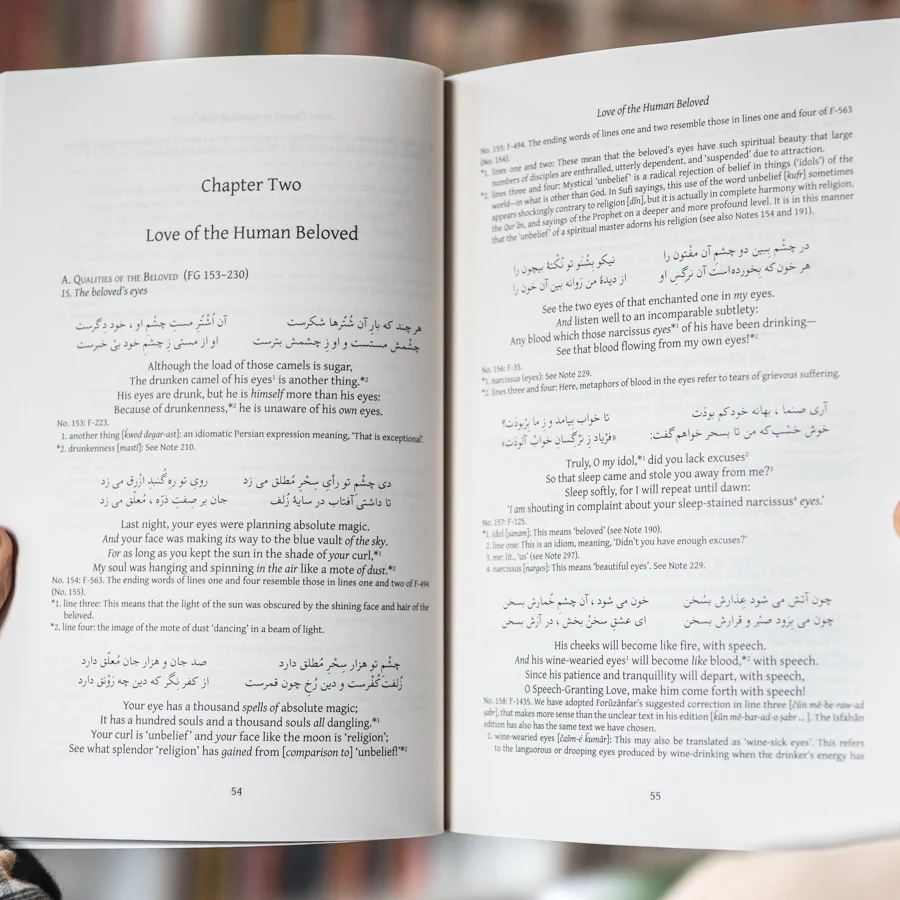 Chapter Two
Love of the Human Beloved
A. Qualities of the Beloved (FG 153–230)
15. The beloved's eyes
هر چند که بارِ آن شُتُرها شکرست آن اُشْتُرِ مستِ چشْمِ او ، خود دِگرست
چشْمش مستست و او زِ چشْمش بترست او از مستی زِ چشْمِ خود بیْ خبرست
Although the load of those camels is sugar,
The drunken camel of his eyes¹ is another thing.*²
His eyes are drunk, but he is himself more than his eyes:
Because of drunkenness,*² he is unaware of his own eyes.
No. 153: F-223.
1. another thing [k͟hwod degar-ast]: an idiomatic Persian expression meaning, 'That is exceptional'.
*2. drunkenness [mastī]: See Note 210.
دی چشْمِ تو رأیِ سِحْرِ مُطلق می زد رویِ تو رهِ گُنبدِ ازْرق می زد
تا داشتیْ آفتاب در سایهٔ زُلف جان بر صِفتِ ذرّه ، مُعلّق می زد
Last night, your eyes were planning absolute magic.
And your face was making its way to the blue vault of the sky.
For as long as you kept the sun in the shade of your curl,*¹
My soul was hanging and spinning in the air like a mote of dust.*²
No. 154: F-563. The ending words of lines one and four resemble those in lines one and two of F-494
(No. 155).
*1. line three: This means that the light of the sun was obscured by the shining face and hair of the
beloved.
*2. line four: the image of the mote of dust 'dancing' in a beam of light.
چشْمِ تو هزار سِحْرِ مُطلق دارد صد جان و هزار جان مُعلّق دارد
زُلفت کُفْرست و دین رُخِ چون قمرست از کفر نِگر که دین چه رَوْنق دارد
Your eye has a thousand spells of absolute magic;
It has a hundred souls and a thousand souls all dangling.*¹
Your curl is 'unbelief' and your face like the moon is 'religion';
See what splendor 'religion' has gained from [comparison to] 'unbelief!'*²
54
Love of the Human Beloved
No. 155: F-494. The ending words of lines one and two resemble those in lines one and four of F-563
(No. 154).
*1. lines one and two: These mean that the beloved's eyes have such spiritual beauty that large
numbers of disciples are enthralled, utterly dependent, and 'suspended' due to attraction.
*2. lines three and four: Mystical 'unbelief' is a radical rejection of belief in things ('idols') of the
world—in what is other than God. In Sufi sayings, this use of the word unbelief [kufr] sometimes
appears shockingly contrary to religion [dīn], but it is actually in complete harmony with religion,
the Qur'ān, and sayings of the Prophet on a deeper and more profound level. It is in this manner
that the 'unbelief' of a spiritual master adorns his religion (see also Notes 154 and 191).
در چشْم ببین دو چشمِ آن مفْتون را نیکو بشْنو تو نُکْتهٔ بیچون را
هر خون که بِخورده است آن نرگسِ او از دیدهٔ من رَوانه بین آن خون را
See the two eyes of that enchanted one in my eyes.
And listen well to an incomparable subtlety:
Any blood which those narcissus eyes*¹ of his have been drinking—
See that blood flowing from my own eyes!*²
No. 156: F-35.
*1. narcissus (eyes): See Note 229.
*2. lines three and four: Here, metaphors of blood in the eyes refer to tears of grievous suffering.
آری صنما ، بهانه خود کم بودَت تا خواب بیامد و زِ ما بِرْبودَت؟
خوش خسْپ که من تا بسحر خواهم گفت: «فرْیاد زِ نرْگسانِ خوابْ آلودَت»
Truly, O my idol,*¹ did you lack excuses²
So that sleep came and stole you away from me?³
Sleep softly, for I will repeat until dawn:
'I am shouting in complaint about your sleep-stained narcissus⁴ eyes.'
No. 157: F-125.
*1. idol [ṣanam]: This means 'beloved' (see Note 190).
2. line one: This is an idiom, meaning, 'Didn't you have enough excuses?'
3. me: lit., 'us' (see Note 297).
4. narcissus [narges]: This means 'beautiful eyes'. See Note 229.
چون آتش می شود عِذارش بسُخن خون می شود ، آن چشمِ خُمارش بسخن
چون می بِرَود صبْر و قرارش بسخن ای عشقِ سخنْ بخش ، در آرَش بسخن
His cheeks will become like fire, with speech.
And his wine-wearied eyes¹ will become like blood,*² with speech.
Since his patience and tranquility will depart, with speech,
O Speech-Granting Love, make him come forth with speech!
No. 158: F-1435. We have adopted Forūzānfar's suggested correction in line three [čūn mē-be-raw-ad
ṣabr], that makes more sense than the unclear text in his edition [kūn mē-bar-ad-o ṣabr ... ]. The Isfahān
edition has also has the same text we have chosen.
1. wine-wearied eyes [čašm-é k͟humār]: This may also be translated as 'wine-sick eyes'. This refers
to the languorous or drooping eyes produced by wine-drinking when the drinker's energy has
55